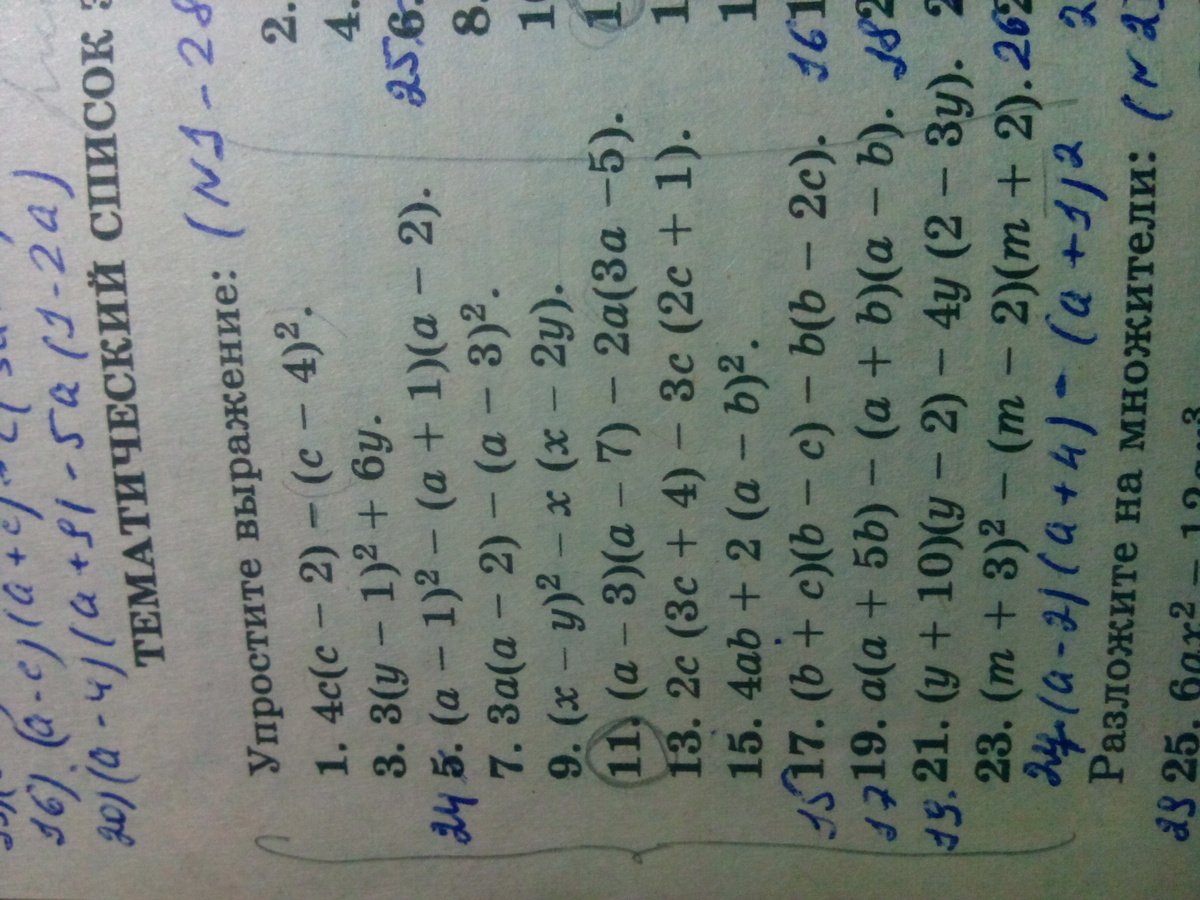 16) (a - c) (a + c)
20) (a - 4) (a + 9) - 5a (1 - 2a)
ТЕМАТИЧЕСКИЙ СПИСОК
Упростите выражение: (N1 - 28
1. 4c(c − 2) − (c − 4)². 2.
3. 3(y − 1)² + 6y. 4.
24 5. (a − 1)² − (a + 1)(a − 2). 25 6.
7. 3a(a − 2) − (a − 3)². 8.
9. (x − y)² − x (x − 2y). 1
11. (a − 3)(a − 7) − 2a(3a −5). 1
13. 2c (3c + 4) − 3c (2c + 1). 1
15. 4ab + 2 (a − b)². 1
15 17. (b + c)(b − c) − b(b − 2c). 16 1
17 19. a(a + 5b) − (a + b)(a − b). 18 2
19. 21. (y + 10)(y − 2) − 4y (2 − 3y). 2
23. (m + 3)² − (m − 2)(m + 2). 26 2
24. (a - 2) (a + 4) - (a + 1)2 2
Разложите на множители: (N 2
29 25. 6ax² − 12ax³